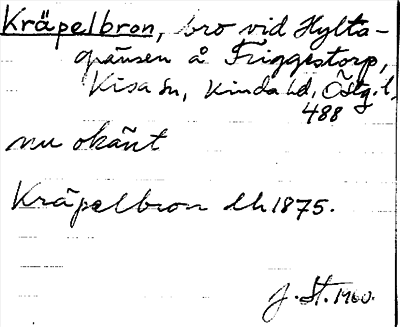 Kräpelbron, bro vid Hylta-
gränsen å Friggestorp,
Kisa sn, Kinda hd, Östg. l.
488
nu okänt
Kräpelbron lh 1875.
J. St. 1960.